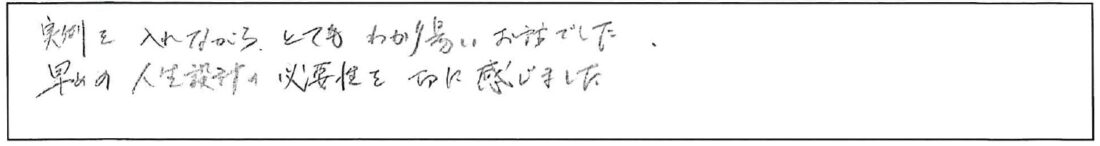 実例を入れながら、とてもわかり易いお話でした。
早めの人生設計の必要性を切に感じました